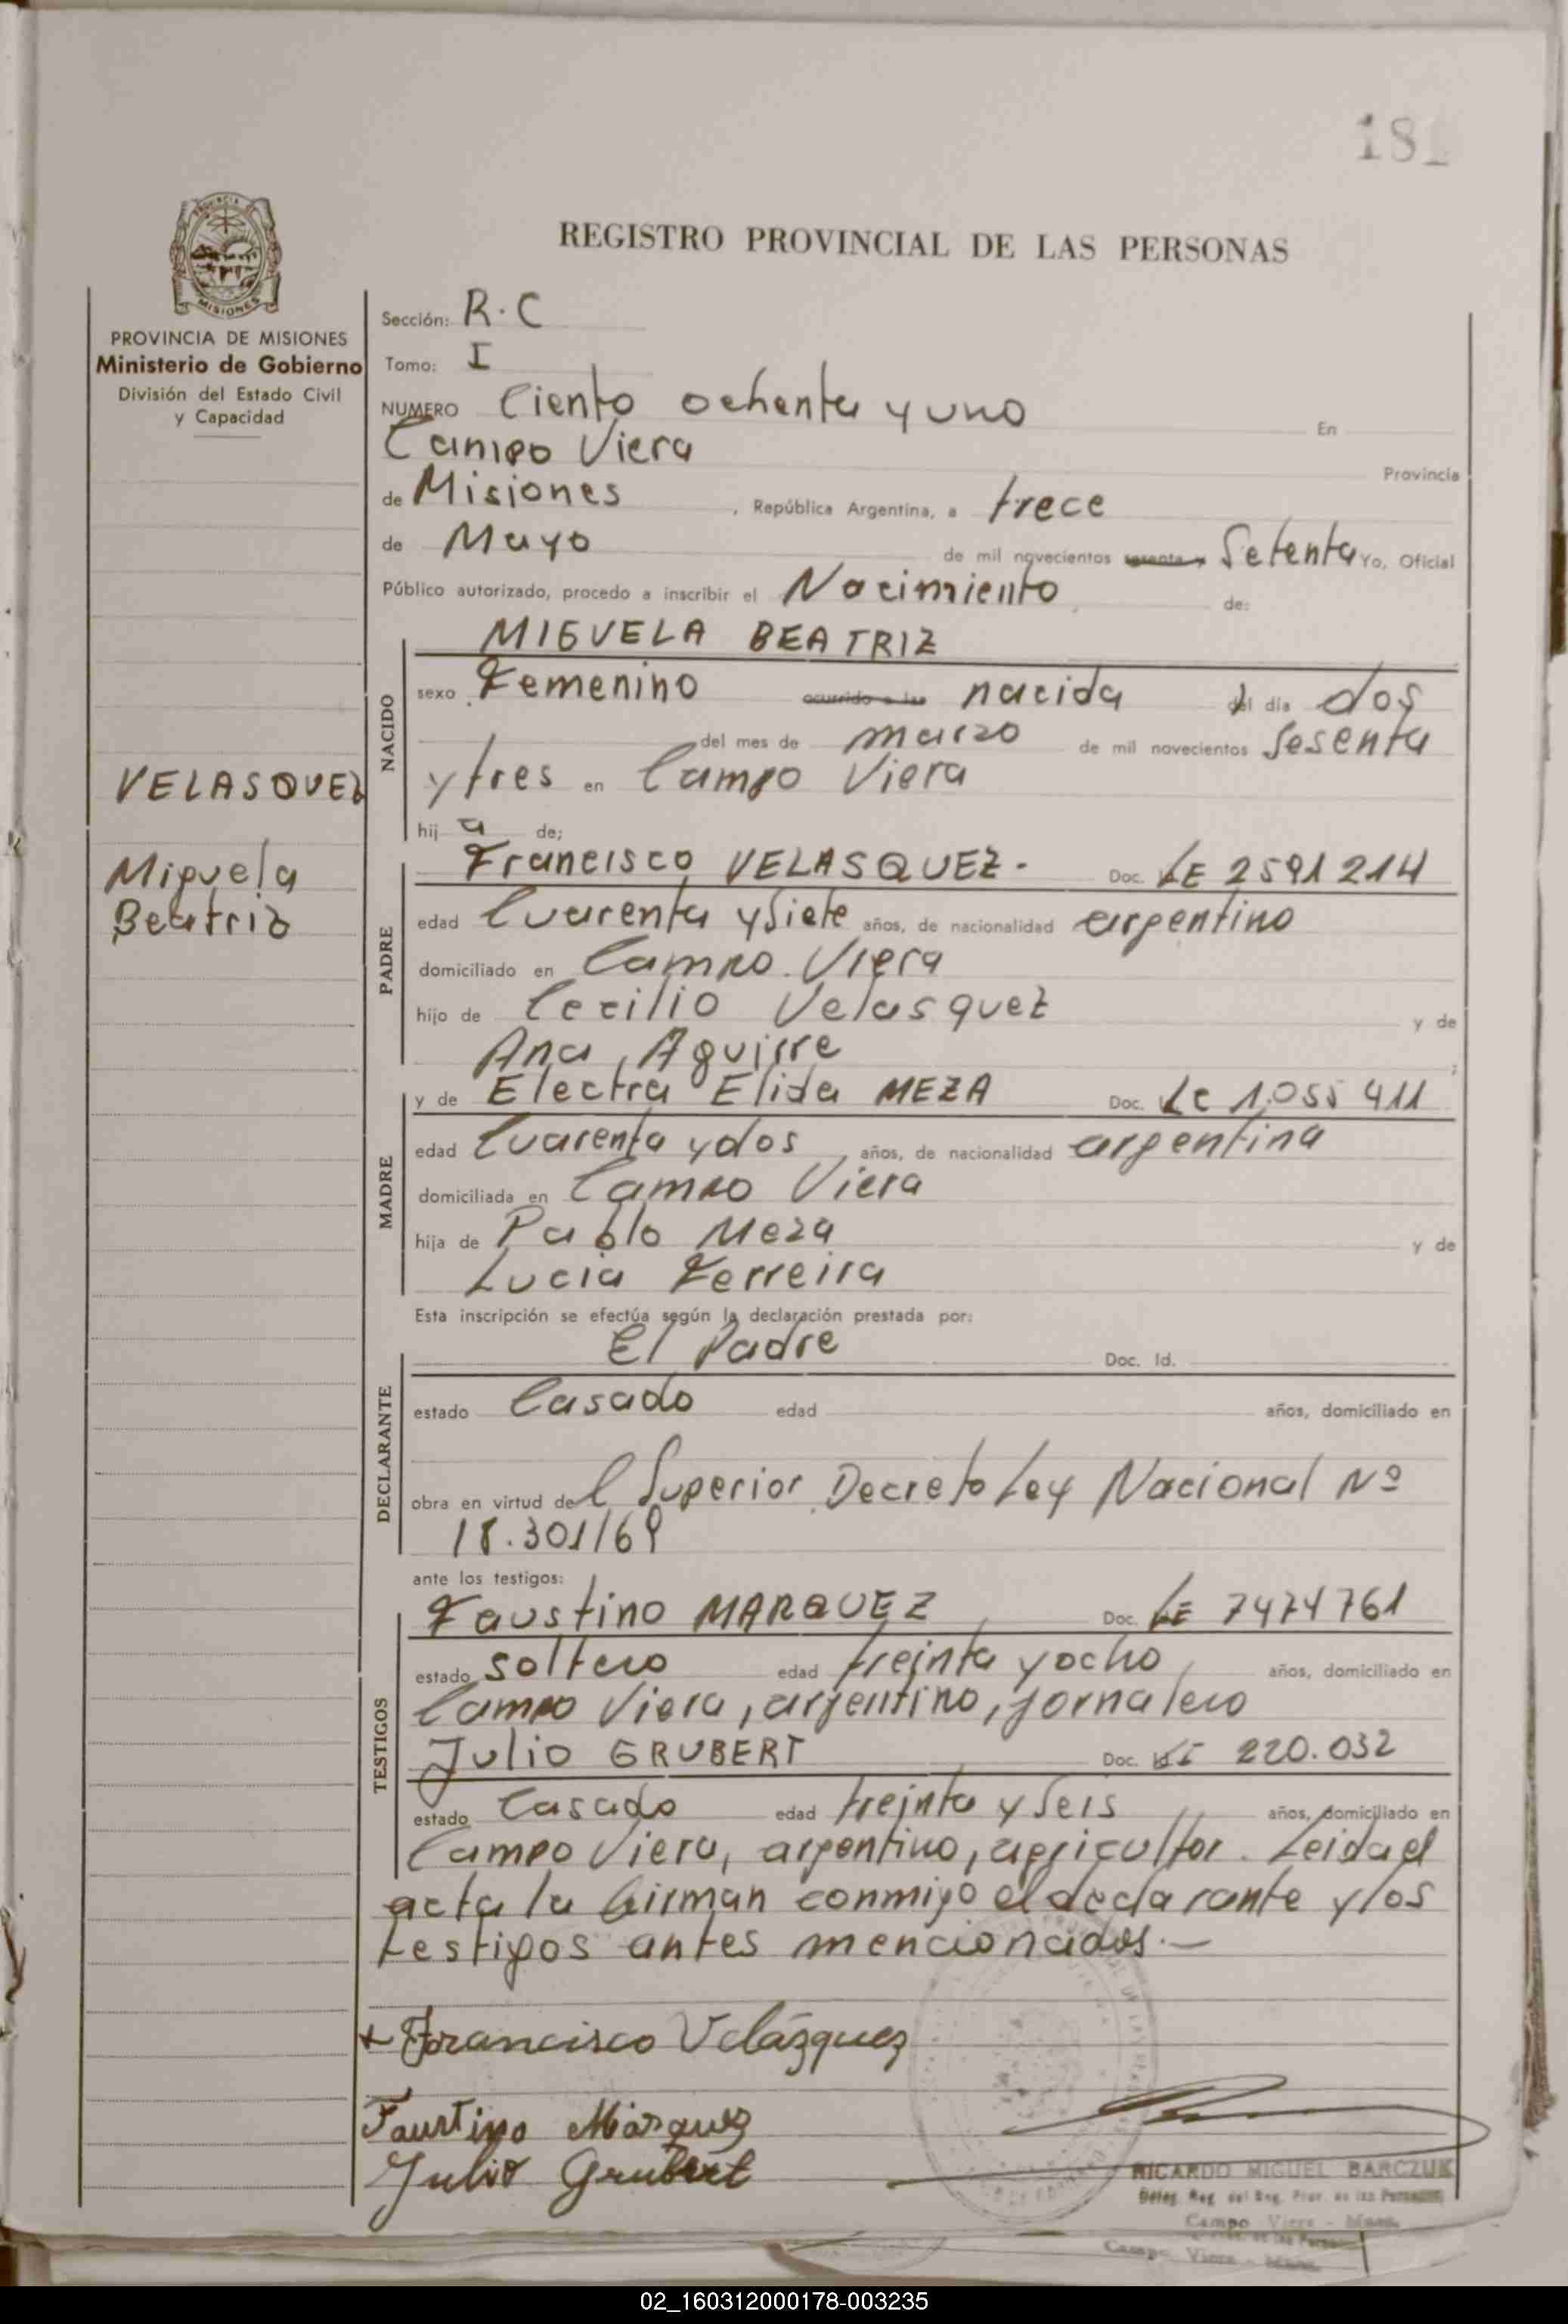 181
REGISTRO PROVINCIAL DE LAS PERSONAS
MISIONES
PROVINCIA DE MISIONES
Ministerio de Gobierno
División del Estado Civil
y Capacidad
VELASQUEZ
Miguela
Beatriz
Sección: R.C
Tomo: I
NUMERO Ciento ochenta y uno En
Campo Viera Provincia
de Misiones, República Argentina, a trece
de Mayo de mil novecientos sesenta y Setenta Yo, Oficial
Público autorizado, procedo a inscribir el Nacimiento de:
NACIDO
MIGUELA BEATRIZ
sexo Femenino ocurrido a las nacida del día dos
del mes de marzo de mil novecientos Sesenta
y tres en Campo Viera
hij a de;
PADRE
Francisco VELASQUEZ. Doc. LE 2591214
edad Cuarenta y Siete años, de nacionalidad argentino
domiciliado en Campo Viera
hijo de Cecilio Velasquez y de
Ana Aguirre
MADRE
y de Electra Elida MEZA Doc. LC 1.055 411
edad Cuarenta y dos años, de nacionalidad argentina
domiciliada en Campo Viera
hija de Pablo Meza y de
Lucia Ferreira
Esta inscripción se efectúa según la declaración prestada por:
DECLARANTE
El Padre Doc. Id.
estado Casado edad años, domiciliado en
obra en virtud del Superior Decreto Ley Nacional Nº
18.301/69
ante los testigos:
TESTIGOS
Faustino MARQUEZ Doc. LE 7474761
estado soltero edad treinta y ocho años, domiciliado en
Campo Viera, argentino, jornalero
Julio GRUBERT Doc. 220.032
estado Casado edad treinta y Seis años, domiciliado en
Campo Viera, argentino, agricultor. Leida el
acta la firman conmigo el declarante y los
testigos antes mencionados.—
Francisco Velázquez
Faustino Márquez
Julio Grubert
RICARDO MIGUEL BARCZUK
Deleg. Reg. del Reg. Prov. de las Personas
Campo Viera - Mnes.
Campo Viera - Mnes.
02_160312000178-003235